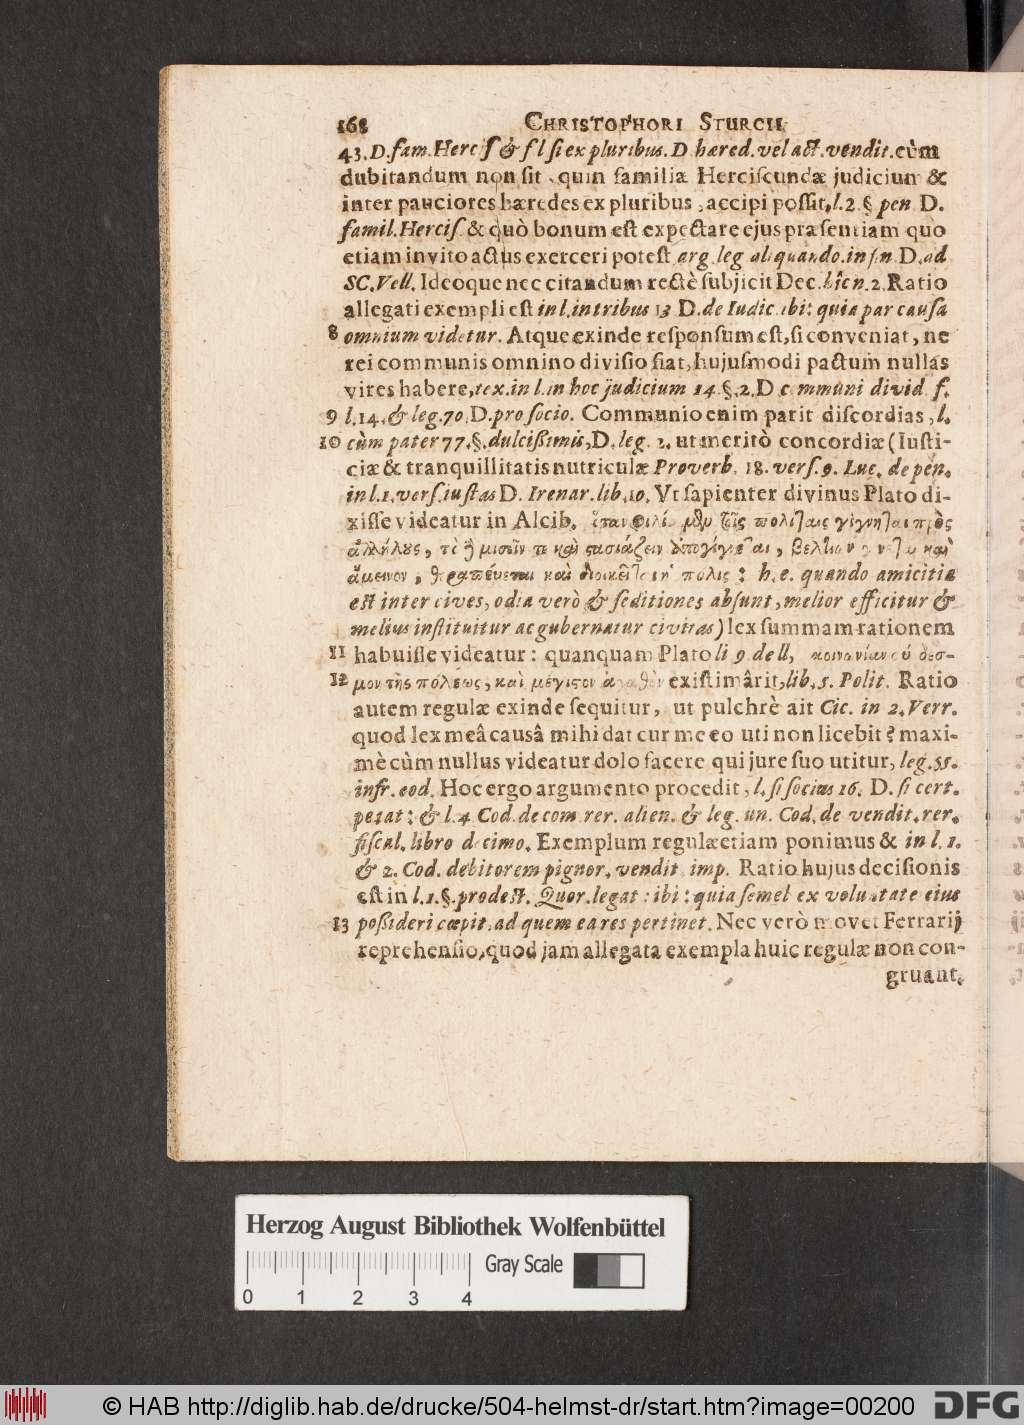 168 CHRISTOPHORI STURCII
43. D. fam. Hercis & s l si ex pluribus. D hæred. vel act. vendit. cùm
dubitandum non sit, quin familiæ Herciscundæ judicium &
inter pauciores hæredes ex pluribus, accipi possit, l. 2 § pen D.
famil. Hercis & quò bonum est expectare ejus præsentiam quo
etiam invito actus exerceri potest arg. leg aliquando. in fin D. ad
SC. Vell. Ideoque nec citandum rectè subjicit Dec. hîc n. 2. Ratio
allegati exempli est in l. in tribus 13 D. de Iudic ibi: quia par causa
8 omnium videtur. Atque exinde responsum est, si conveniat, ne
rei communis omnino divisio fiat, hujusmodi pactum nullas
vires habere, tex. in l. in hoc judicium 14 §. 2. D communi divid. s.
9 l. 14. & leg. 70. D. pro socio. Communio enim parit discordias, l.
10 cùm pater 77. §. dulcißimis, D. leg. 2. ut meritò concordiæ (Iusti-
ciæ & tranquillitatis nutriculæ Proverb. 18. vers. 9. Luc. de pen.
in l. 1. vers. iustas D. Irenar. lib. 10. Vt sapienter divinus Plato di-
xisse videatur in Alcib. πολίταις γίγνηται πρὸς
ἀλλήλους, τὸ μισεῖν τε καὶ στασιάζειν καὶ
ἄμεινον, θεραπεύεται καὶ διοικεῖται ἡ πόλις: h. e. quando amicitia
est inter cives, odia verò & seditiones absunt, melior efficitur &
melius instituitur ac gubernatur civitas) lex summam rationem
11 habuisse videatur: quanquam Plato li 9 de ll, κοινωνίαν δεσ-
12 μον τῆς πόλεως, καὶ μέγιστον ἀγαθὸν existimârit, lib. 5. Polit. Ratio
autem regulæ exinde sequitur, ut pulchrè ait Cic. in 2. Verr.
quod lex meâ causâ mihi dat cur me eo uti non licebit? maxi-
mè cùm nullus videatur dolo facere qui jure suo utitur, leg. 55.
infr. eod. Hoc ergo argumento procedit, l. si socius 16. D. si cert.
petat: & l. 4 Cod. de com. rer. alien. & leg. un. Cod. de vendit. rer.
fiscal. libro decimo. Exemplum regulæ etiam ponimus & in l. 1.
& 2. Cod. debitorem pignor. vendit imp. Ratio hujus decisionis
est in l. 1. §. prodest. Quor. legat: ibi: quia semel ex voluntate eius
13 poßideri cœpit, ad quem ea res pertinet. Nec verò movet Ferrarij
reprehensio, quod jam allegata exempla huic regulæ non con-
gruant.
Herzog August Bibliothek Wolfenbüttel
Gray Scale
0 1 2 3 4
© HAB http://diglib.hab.de/drucke/504-helmst-dr/start.htm?image=00200
DFG